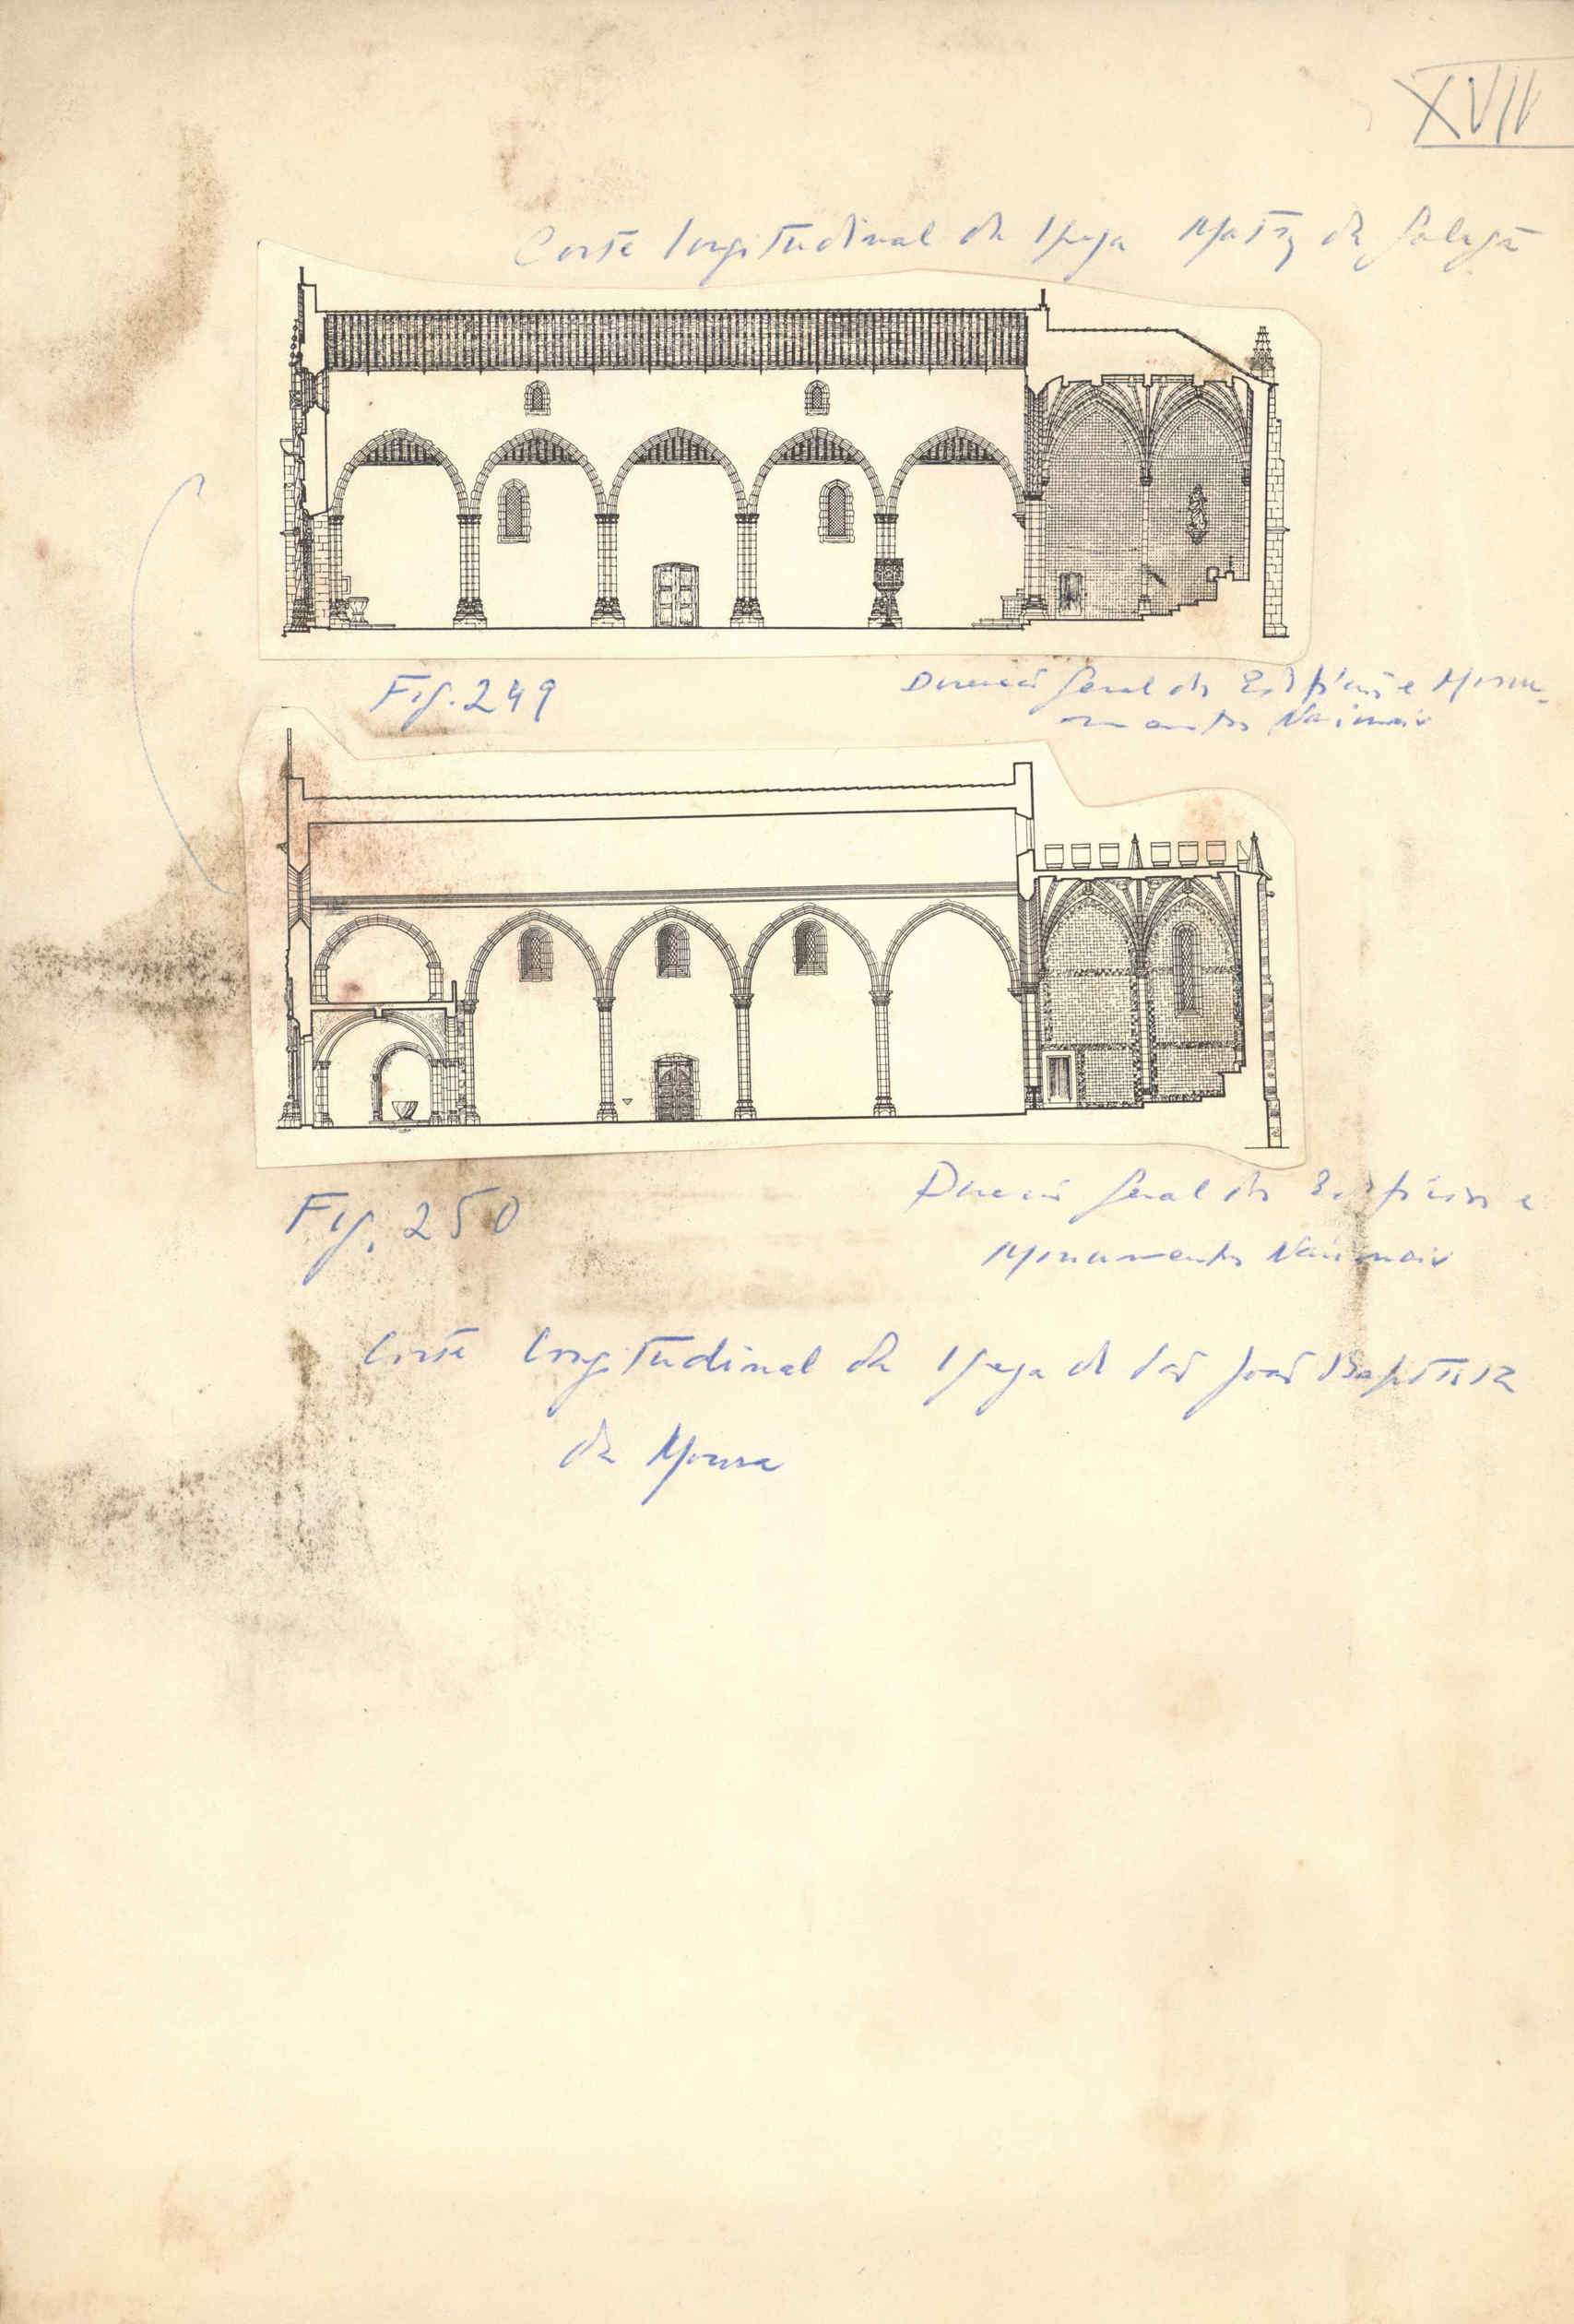 XVII
Corte longitudinal da Igreja Matriz da Golegã
Fig. 249
Direcção Geral dos Edifícios e Monu-
mentos Nacionais
Fig. 250
Direcção Geral dos Edifícios e
Monumentos Nacionais
Corte longitudinal da Igreja de São João Baptista
de Moura